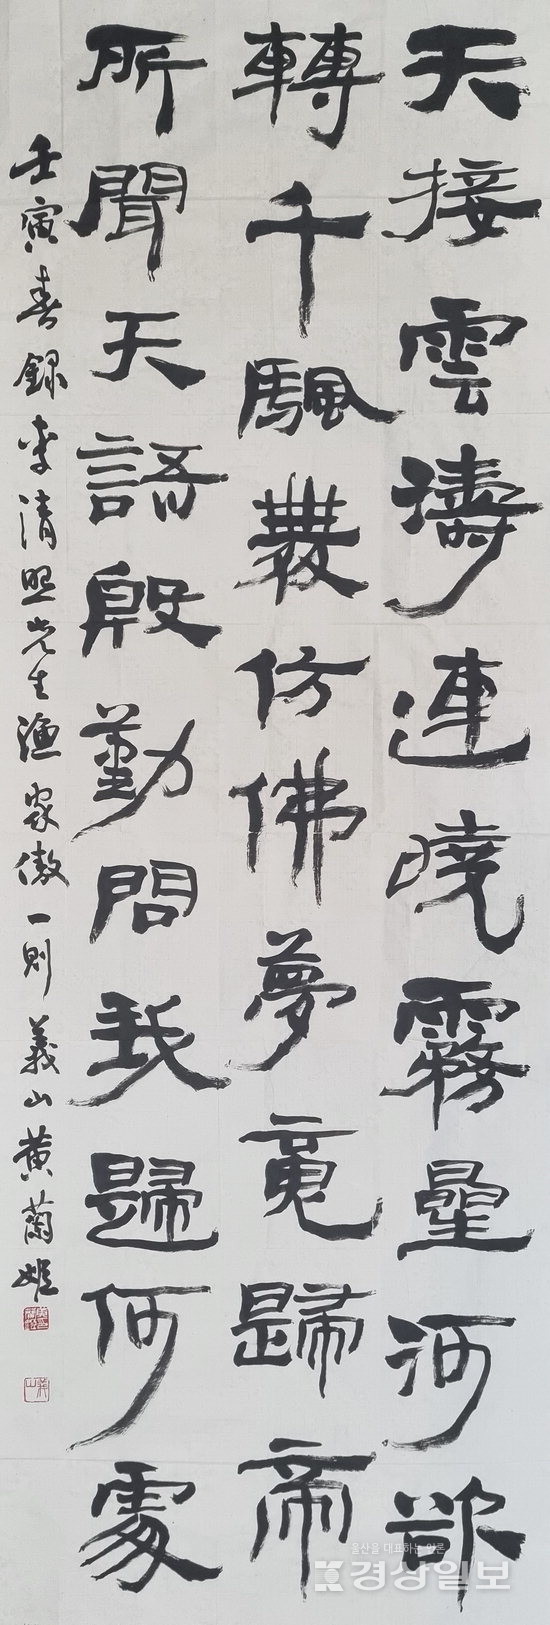 天接雲濤連曉霧星河欲
轉千颿舞仿佛夢魂歸帝
所聞天語殷勤問我歸何處
壬寅春錄李清照先生漁家傲一則 義山黃蘭姬
울산을 대표하는 언론
경상일보